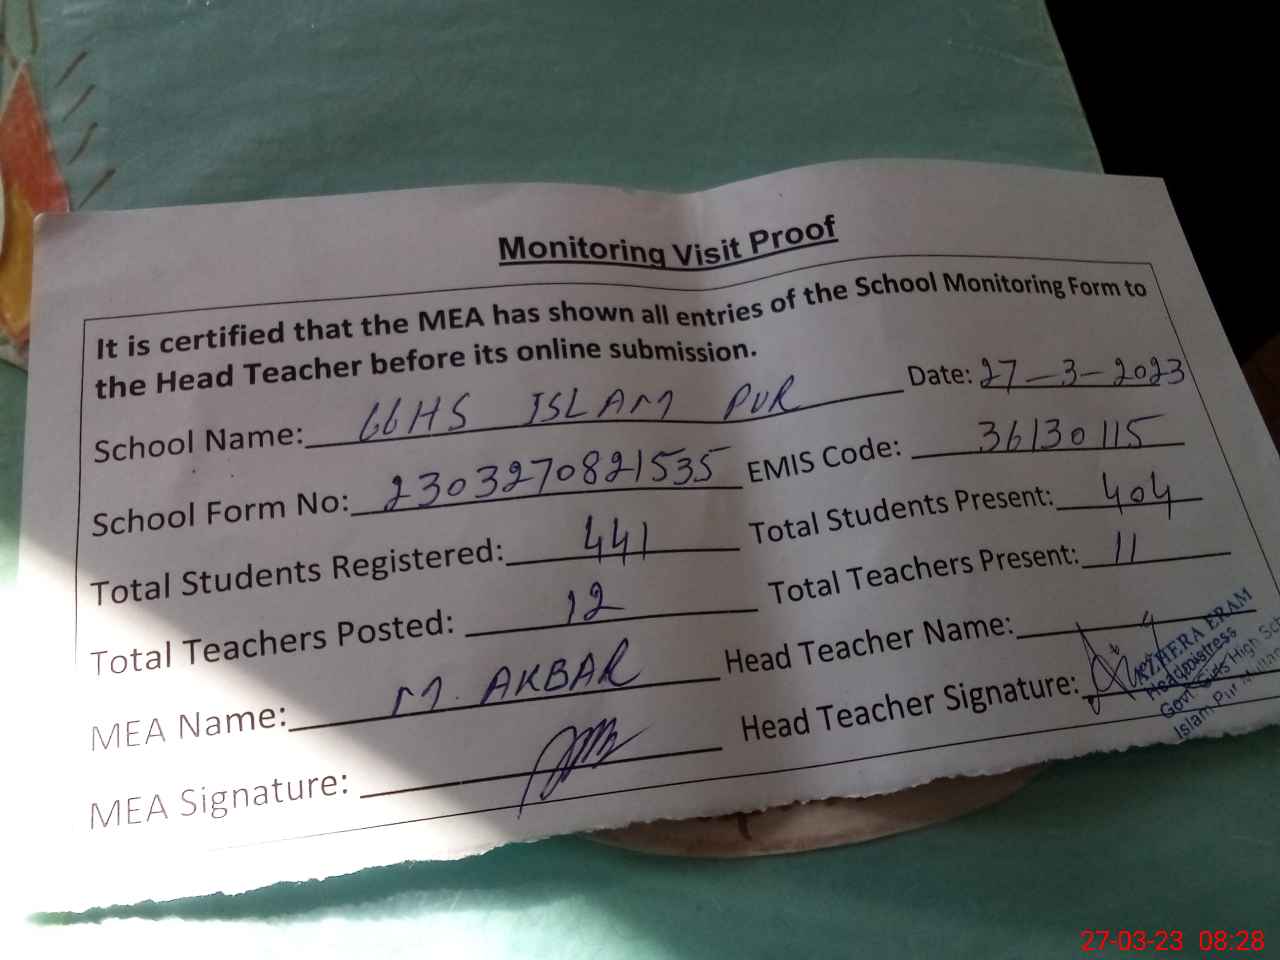 Monitoring Visit Proof
It is certified that the MEA has shown all entries of the School Monitoring Form to
the Head Teacher before its online submission.
School Name: GGHS ISLAM PUR Date: 27-3-2023
School Form No: 2303270821535 EMIS Code: 36130115
Total Students Registered: 441 Total Students Present: 404
Total Teachers Posted: 12 Total Teachers Present: 11
MEA Name: M. AKBAR Head Teacher Name:
MEA Signature: Head Teacher Signature:
AZHERA ERAM
Headmistress
Govt Girls High
Islam Pur
27-03-23 08:28